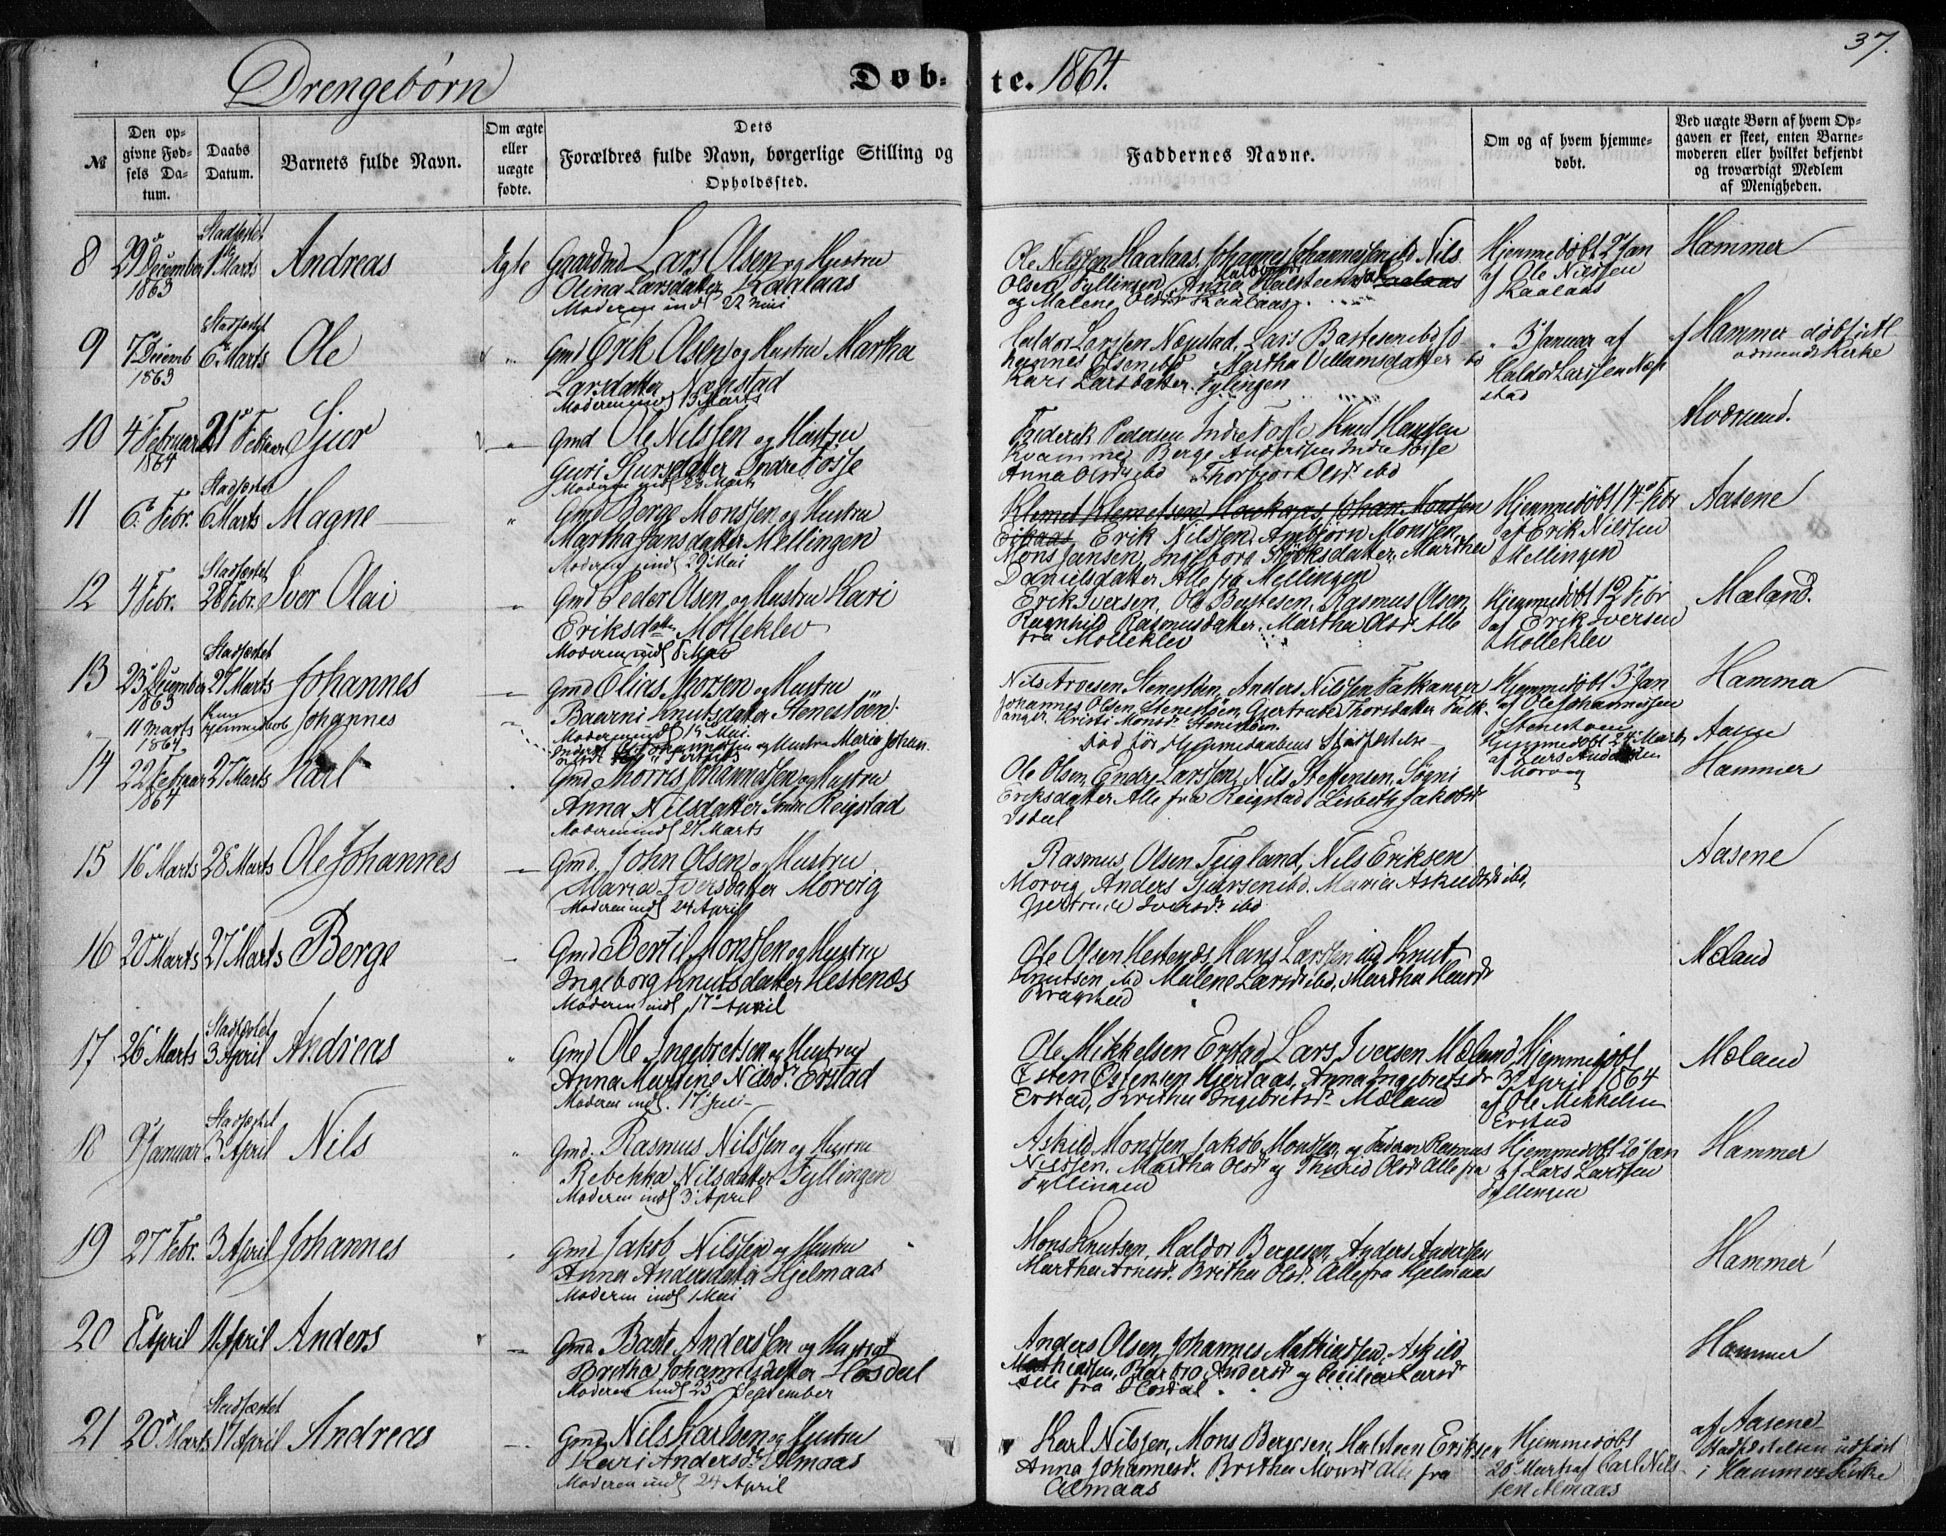 37.
Drengebørn
Døb-te. 1864.
№
Den opgivne Fødsels Datum.
Daabs Datum.
Barnets fulde Navn.
Om ægte eller uægte fødte.
Dets Forældres fulde Navn, borgerlige Stilling og Opholdssted.
Faddernes Navne.
Om og af hvem hjemmedøbt.
Ved uægte Børn af hvem Opgaven er skeet, enten Barnemoderen eller hvilket bekjendt og troværdigt Medlem af Menigheden.
8
29 December 1863
Stadfæstet
1 Marts
Andreas
Ægte
Gaardmd Lars Olsen og Hustru
Olina Larsdatter Kaalaas
Moderen indl 22 Mai
Ole Nilssen Kaalaas, Johannes Johannessen ibd Nils
Olsen Fyllingen, Anna Halsteensd
og Malene Olsdr Kaalaas
Hjemmedøbt 2 Jan
af Ole Nilssen
Kaalaas
Hammer
9
7 Decemb 1863
Stadfæstet
6 Marts
Ole
Gmd Erik Olsen og Hustru Martha
Larsdatter Næpstad
Moderen indl 13 Marts
Haldor Larssen Næpstad, Lars Bastesen ibd Jo
hannes Olsen ibd Martha Villumsdatter ibd
Kari Larsdatter Fylingen
" 3 Januar af
Haldor Larssen Næp
stad
Hammer
10
4 Februar 1864
21 Februar
Sjur
Gmd Ole Nilssen og Hustru
Guri Sjursdatter Indre Fosse
Moderen indl 28 Marts
Frederik Pedersen Indre Fosse Knut Hansen
Kvamme, Berge Andersen Indre Fosse
Anna Olsdr ibd Thorbjør Olsdr ibd
11
6 Febr.
Stadfæstet
6 Marts
Magne
"
Gmd Berge Monssen og Hustru
Martha Jansdatter Mellingen
Moderen indl 29 Mai
Erik Nilssen, Ambjørn Monssen
Mons Jansen, Ingeborg
Martha
Danielsdatter Alle fra Mellingen
Hjemmedøbt 14 Febr
af Erik Nilssen
Mellingen
Aasene
12
4 Febr.
Stadfæstet
28 Febr.
Iver Olai
Gmd Peder Olsen og Hustru Kari
Eriksdatter Mølleklev
Moderen indl 8 Mai
Erik Iversen, Ole Bastesen, Rasmus Olsen
Ragnhild Rasmusdatter, Martha Olsdr Alle
fra Mølleklev
Hjemmedøbt 12 Febr
af Erik Iversen
Mølleklev
Mæland.
13
23 December 1863
Stadfæstet
27 Marts
Johannes
Gmd Elias Thorsen og Hustru
Baarni Knutsdatter Stenestøen
Nils Arvesen Stenestøen, Anders Nilssen Falkanger
Johannes Olsen Stenestøen, Gjertrude Thorsdatter Falk
anger, Kristi Monsdr Stenestøen
Hjemmedøbt 3 Jan
af Ole Johannessen
Stenestøen
Hammer
" 11 Marts 1864
kun
hjemmedøbt
Johannes
Død før Hjemmedaabens Stadfæstelse
Hjemmedøbt 24 Marts
af Lars Andersen
Morvig
Aasene
14
22 Februar 1864
27 Marts
Karl
Gmd Thorris Johannessen og Hustru
Anna Nilsdatter Indre Reigstad
Moderen indl 27 Marts
Ole Olsen, Endre Larssen, Nils Steffensen, Søgni
Eriksdatter Alle fra Reigstad, Lisbeth Jakobsdr
Hammer
15
16 Marts
28 Marts
Ole Johannes
Gmd. John Olsen og Hustru
Maria Iversdatter Morvig
Moderen indl 24 April
Rasmus Olsen Teigland, Nils Eriksen
Morvig, Anders Sjursen ibd. Maria Askildsdr ibd,
Gjertrude Iversdr ibd
Aasene
16
20 Marts
27 Marts
Berge
Gmd Bertil Monssen og Hustru
Ingeborg Knutsdatter Hestenæs
Moderen indl 17 April
Ole Olsen Hestenæs, Hans Larssen ibd Knut
Knutsen ibd Malene Larsdr ibd, Martha
Mæland
17
26 Marts
Stadfæstet
3 April
Andreas
"
Gmd Ole Ingebretsen og Hustru
Anna Martine Næsd. Erstad
Moderen indl. 17 Juli
Ole Mikkelsen Erstad, Lars Iversen Mæland
Østen Østensen Hjertaas, Anna Ingebretsdr
Erstad, Britha Ingebretsdr Mæland
Hjemmedøbt
3 April 1864
af Ole Mikkelsen
Erstad
Mæland
18
9 Januar
Stadfæstet
3 April
Nils
Gmd. Rasmus Nilssen og Hustru
Rebekka Nilsdatter Fyllingen
Moderen indl 3 April
Askild Monssen, Jakob Monssen og Faderen Rasmus
Nilssen, Martha Olsdr og Thurid Olsdr Alle fra
Fyllingen
Hjemmedøbt 20 Jan
af Lars Larssen
Fyllingen
Hammer
19
27 Febr.
3 April
Johannes
Gmd Jakob Nilssen og Hustru
Anna Andersdatter Hjelmaas
Moderen indl 1 Mai
Mons Knutsen, Haldor Bergesen, Anders Andersen
Martha Arnesdr. Britha Olsdr. Alle fra Hjelmaas
Hammer
20
8 April
11 April
Anders
Gmd. Baste Anderssen og Hustru
Britha Johannesdatter Hosdal
Moderen indl 25 September
Anders Olsen, Johannes Mathiassen, Askild
Mathiassen, Barbro Andersdr og Cicilia Larsdr
Alle fra Hosdal
Hammer
21
20 Marts
Stadfæstet
17 April
Andreas
Gmd. Nils Karlsen og Hustru
Kari Andersdr. Almaas
Moderen indl 24 April
Karl Nilssen, Mons Bergesen, Halsteen Eriksen
Anna Johannesdr. Britha Monsdr Alle fra
Almaas
Hjemmedøbt
20 Marts af Carl Nils
sen Almaas
af Aasene
Stadfæstelsen udført
i Hammer Kirke